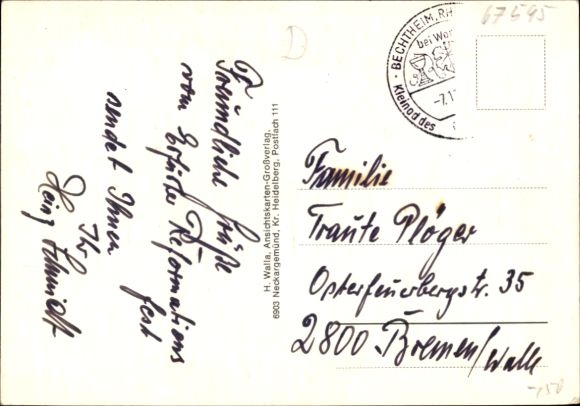 Freundliche Grüße
vom Erfurter Reformations
fest
sendet Ihnen
Ihr
Heinz Schmidt
H. Walla, Ansichtskarten-Großverlag,
6903 Neckargemünd, Kr. Heidelberg, Postfach 111
67595
BECHTHEIM, RH
bei Wor
-7.1
Kleinod des
Familie
Traute Plöger
Osterfeuerbergstr. 35
2800 Bremen/Walle